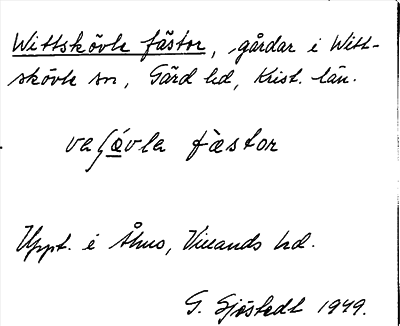 Wittskövle fästor, gårdar i Witt-
skövle sn, Gärd hd, Krist. län.
vaʃǿvla fæ̀stor
Uppt. i Åhus, Villands hd.
G. Sjöstedt 1949.